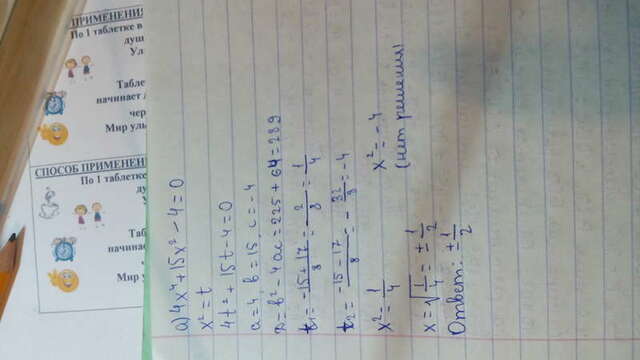 ПРИМЕНЕНИЯ
По 1 таблетке в
душ
Табле
начинает
чер
Мир улы
СПОСОБ ПРИМЕНЕНИ
По 1 таблетке
Табле
начинает
чер
Мир у
а) 4x⁴+15x²-4=0
x²=t
4t²+15t-4=0
a=4, b=15, c=-4
D=b²-4ac=225+64=289
t₁=(-15+17)/8=2/8=1/4
t₂=(-15-17)/8=-32/8=-4
x²=1/4 x²=-4
(нет решения)
x=√(1/4)=±1/2
Ответ: ±1/2